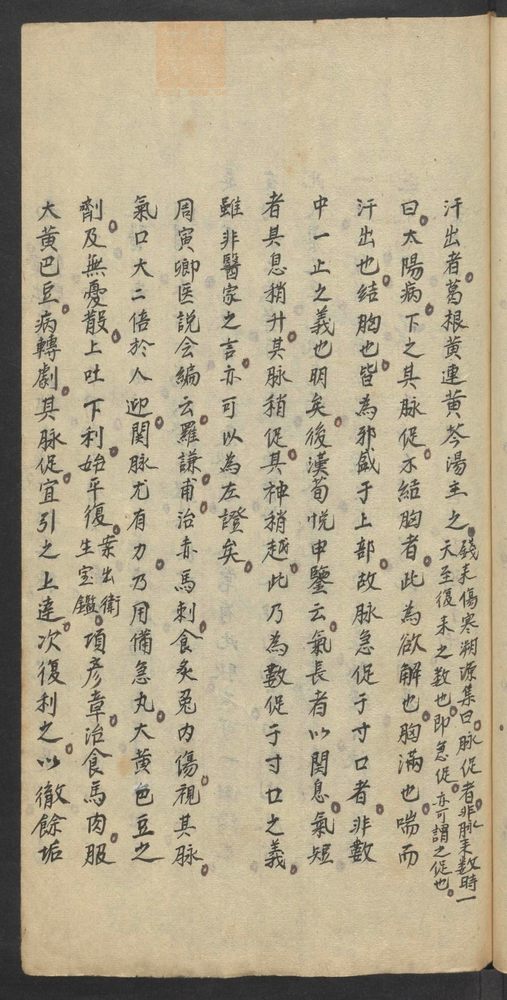 汗出者葛根黄連黄芩湯主之錢氏傷寒溯源集曰脉促者非脉来数時一
夭至復来之数也即急促亦可謂之促也
曰太陽病下之其脉促不結胸者此為欲解也胸滿也喘而
汗出也結胸也皆為邪盛于上部故脉急促于寸口者非數
中一止之義也明矣後漢荀悦申鑒云氣長者以関息氣短
者其息稍升其脉稍促其神稍越此乃為數促于寸口之義
雖非醫家之言亦可以為左證矣
周寅卿医説会編云羅謙甫治赤馬刺食炙兎内傷視其脉
氣口大二倍於人迎関脉尤有力乃用備急丸大黄色豆之
劑及無憂散上吐下利始平復案出衛
生宝鑑項彦章治食馬肉服
大黄巴豆病轉劇其脉促宜引之上達次復利之以徹餘垢